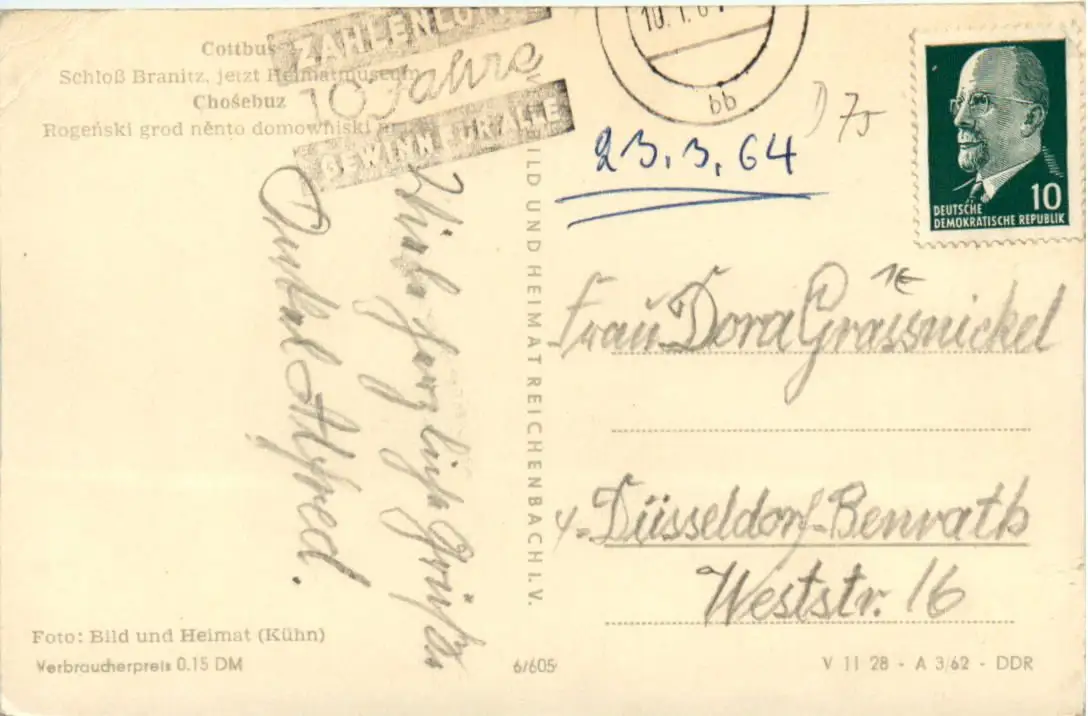 Cottbus
Schloß Branitz, jetzt Heimatmuseum
Chośebuz
Rogeński grod něnto domowniski
ZAHLENLOTTO
10 Jahre
GEWINN FÜR ALLE
10. 1. 64
bb
75
23.3.64
10
DEUTSCHE
DEMOKRATISCHE REPUBLIK
Liebe herzliche Grüße
Onkel Alfred.
BILD UND HEIMAT REICHENBACH I. V.
Frau Dora Grassnickel
4-Düsseldorf-Benrath
Weststr. 16
Foto: Bild und Heimat (Kühn)
Verbraucherpreis 0.15 DM
6/605
V 11 28 - A 3/62 - DDR